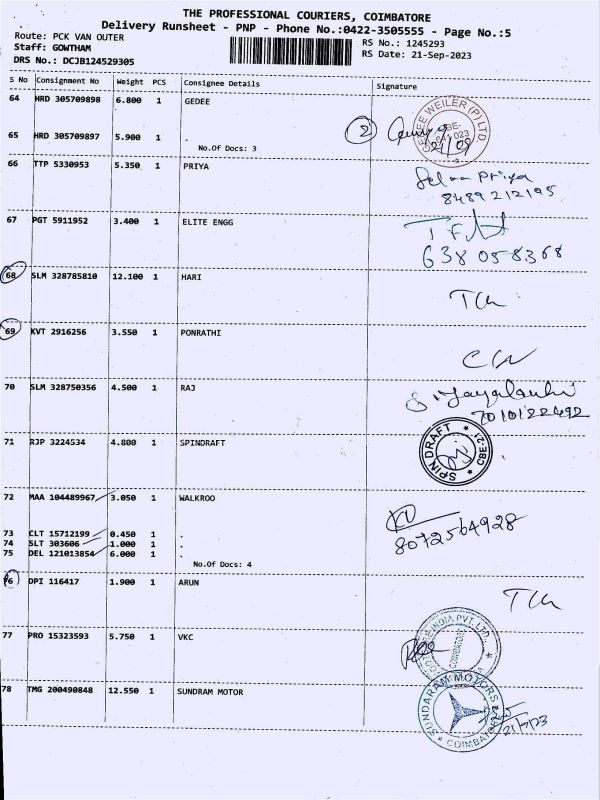 THE PROFESSIONAL COURIERS, COIMBATORE
Delivery Runsheet - PNP - Phone No.:0422-3505555 - Page No.:5
Route: PCK VAN OUTER
RS No.: 1245293
Staff: GOWTHAM
RS Date: 21-Sep-2023
DRS No.: DCJB124529305
S No Consignment No Weight PCS Consignee Details Signature
64 HRD 305709898 6.800 1 GEDEE
65 HRD 305709897 5.900 1 .
No.Of Docs: 3
2
21/09
GEDEE WEILER (P) LTD
66 TTP 5330953 5.350 1 PRIYA
Priya
8489212195
67 PGT 5911952 3.400 1 ELITE ENGG
638058368
68 SLM 328785810 12.100 1 HARI
69 KVT 2916256 3.550 1 PONRATHI
70 SLM 328750356 4.500 1 RAJ
7010122492
71 RJP 3224534 4.800 1 SPINDRAFT
SPIN DRAFT
CBE-21
72 MAA 104489967 3.050 1 WALKROO
8072564928
73 CLT 15712199 0.450 1 .
74 SLT 303606 1.000 1 .
75 DEL 121013854 6.000 1 .
No.Of Docs: 4
76 DPI 116417 1.900 1 ARUN
77 PRO 15323593 5.750 1 VKC
INDIA PVT. LTD.
COIMBATORE
78 TMG 200490848 12.550 1 SUNDRAM MOTOR
SUNDARAM MOTORS
COIMBATORE